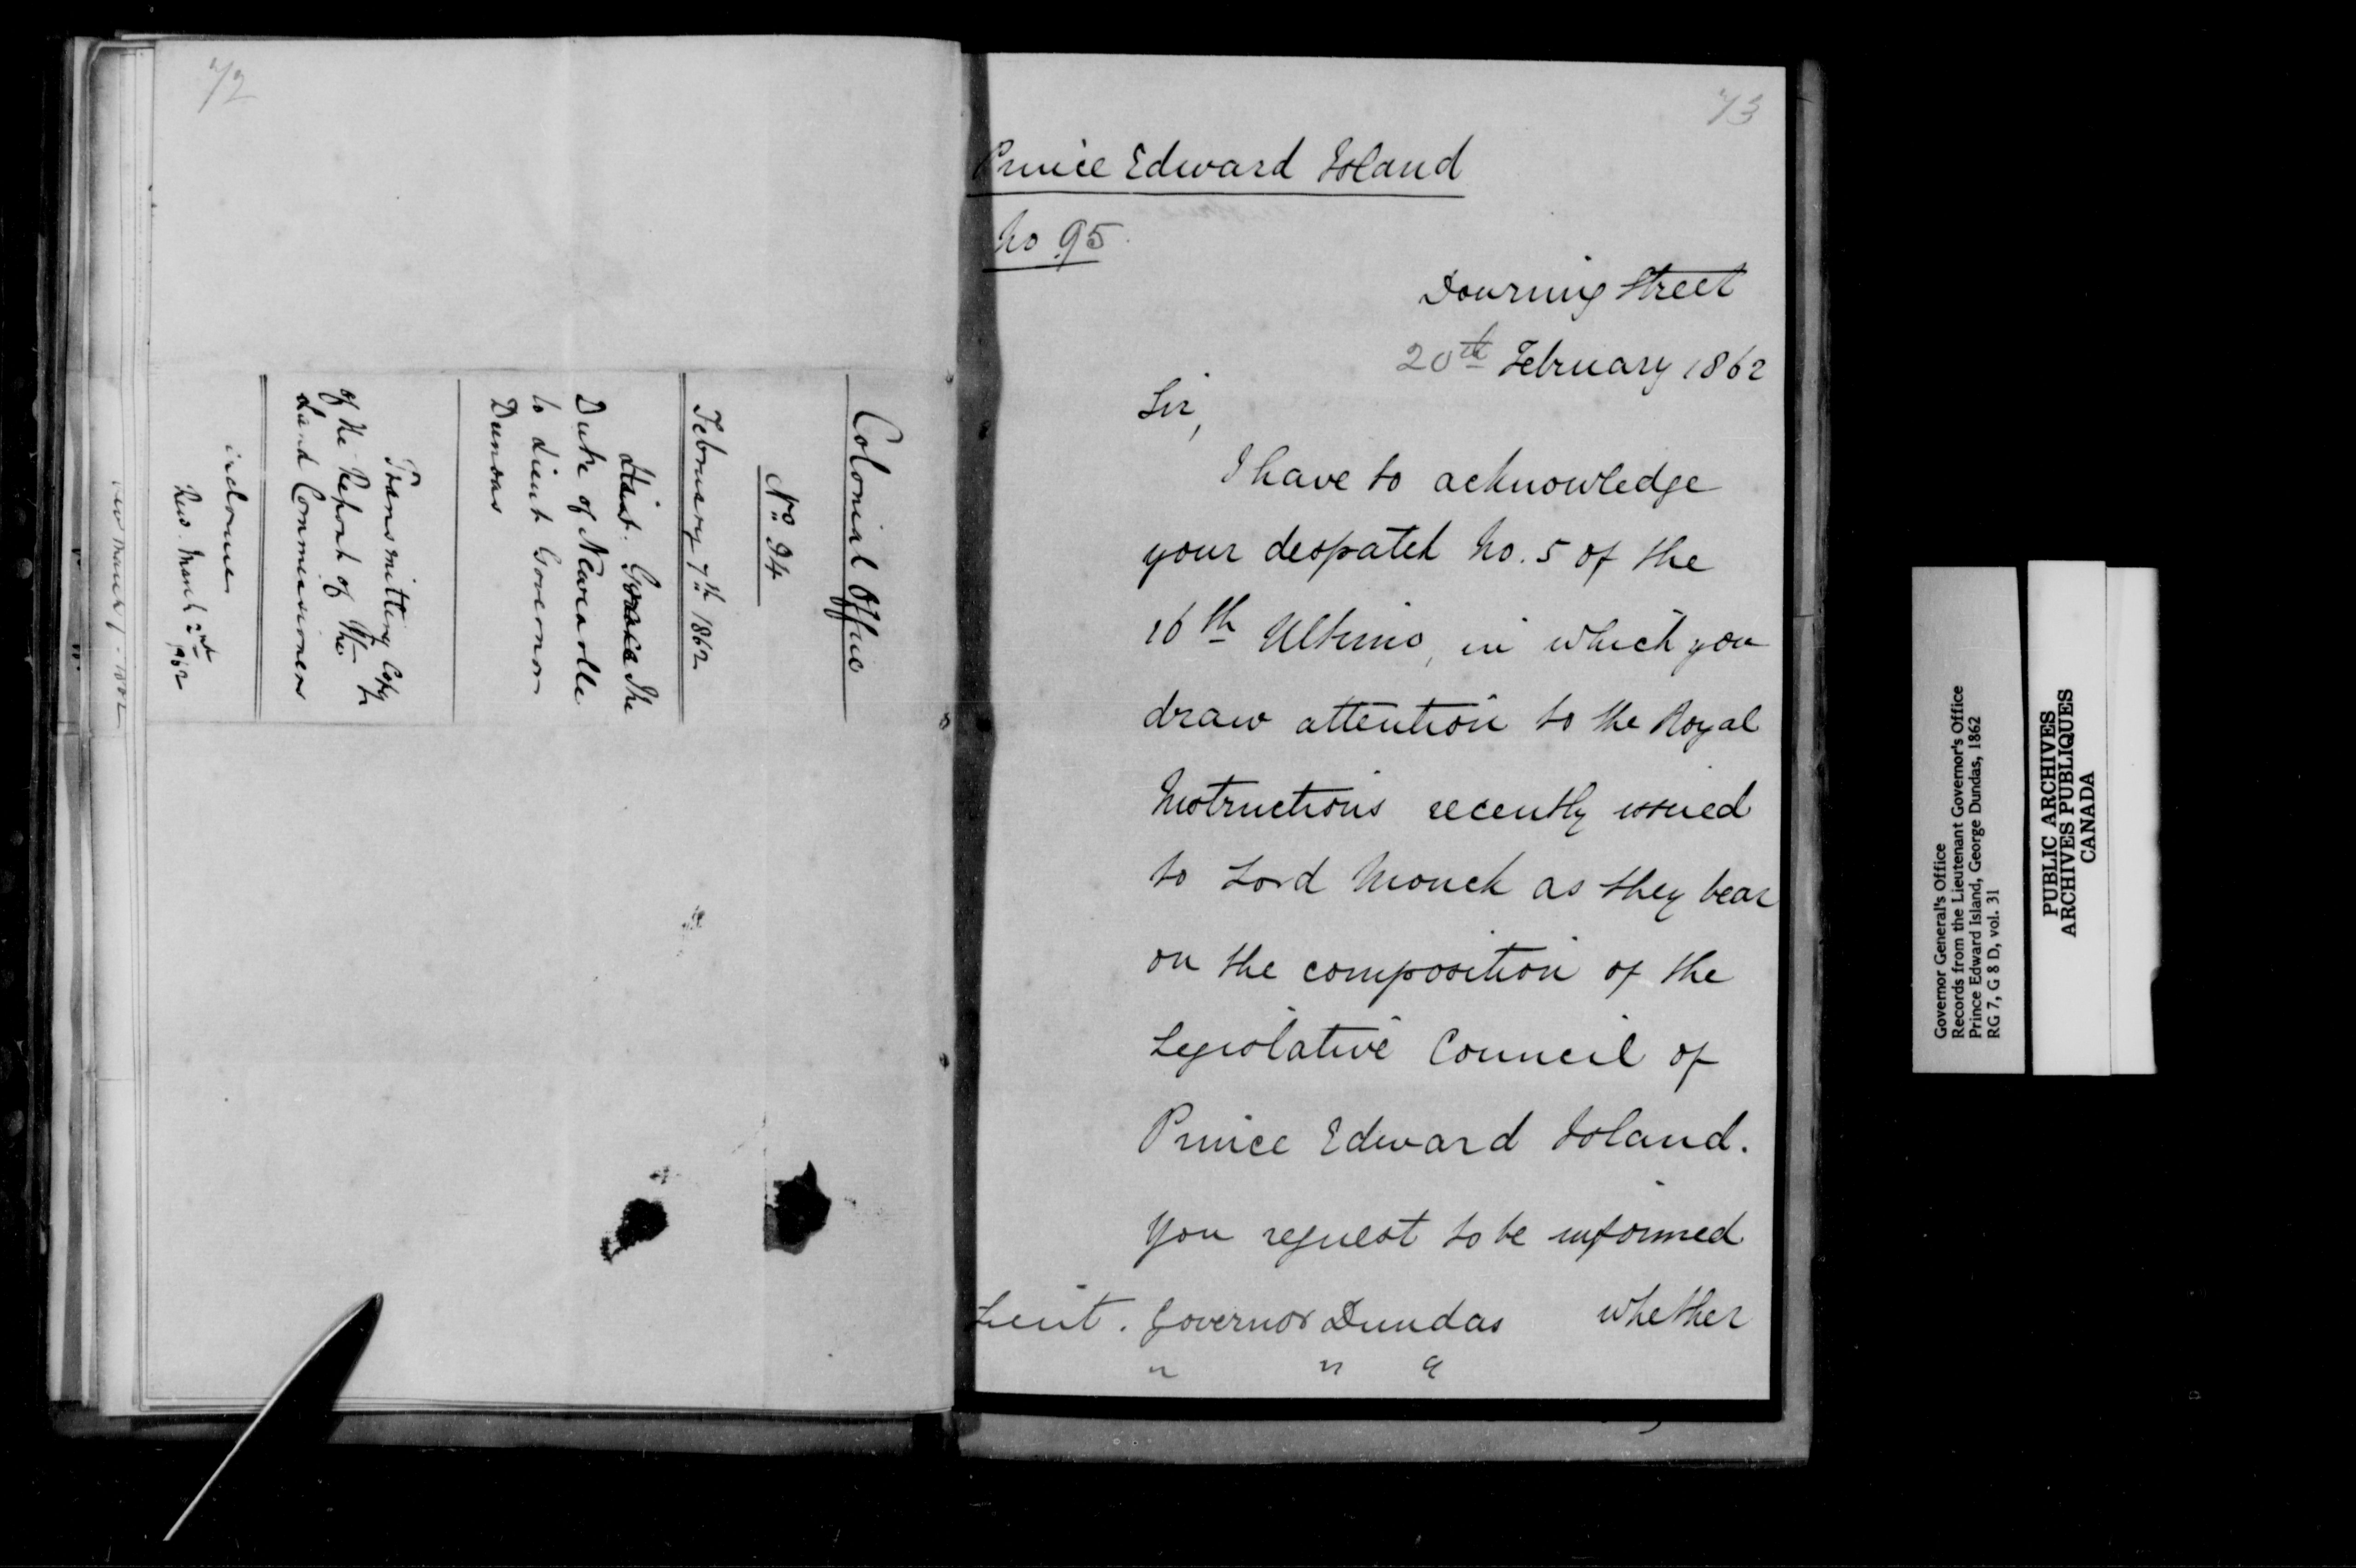 72
Colonial Office
No. 94
February 7th 1862
Grace The
Duke of Newcastle
to Lieut Governor
Dundas
Transmitting Copy
of the Report of the
Land Commissioners
Rec. March 2nd
73
Prince Edward Island
No 95
Downing Street
20th February 1862
Sir,
I have to acknowledge
your despatch No. 5 of the
16th Ultimo, in which you
draw attention to the Royal
Instructions recently issued
to Lord Monck as they bear
on the composition of the
Legislative Council of
Prince Edward Island.
You request to be informed
whether
Lieut. Governor Dundas
Governor General's Office
Records from the Lieutenant Governor's Office
Prince Edward Island, George Dundas, 1862
RG 7, G 8 D, vol. 31
PUBLIC ARCHIVES
ARCHIVES PUBLIQUES
CANADA